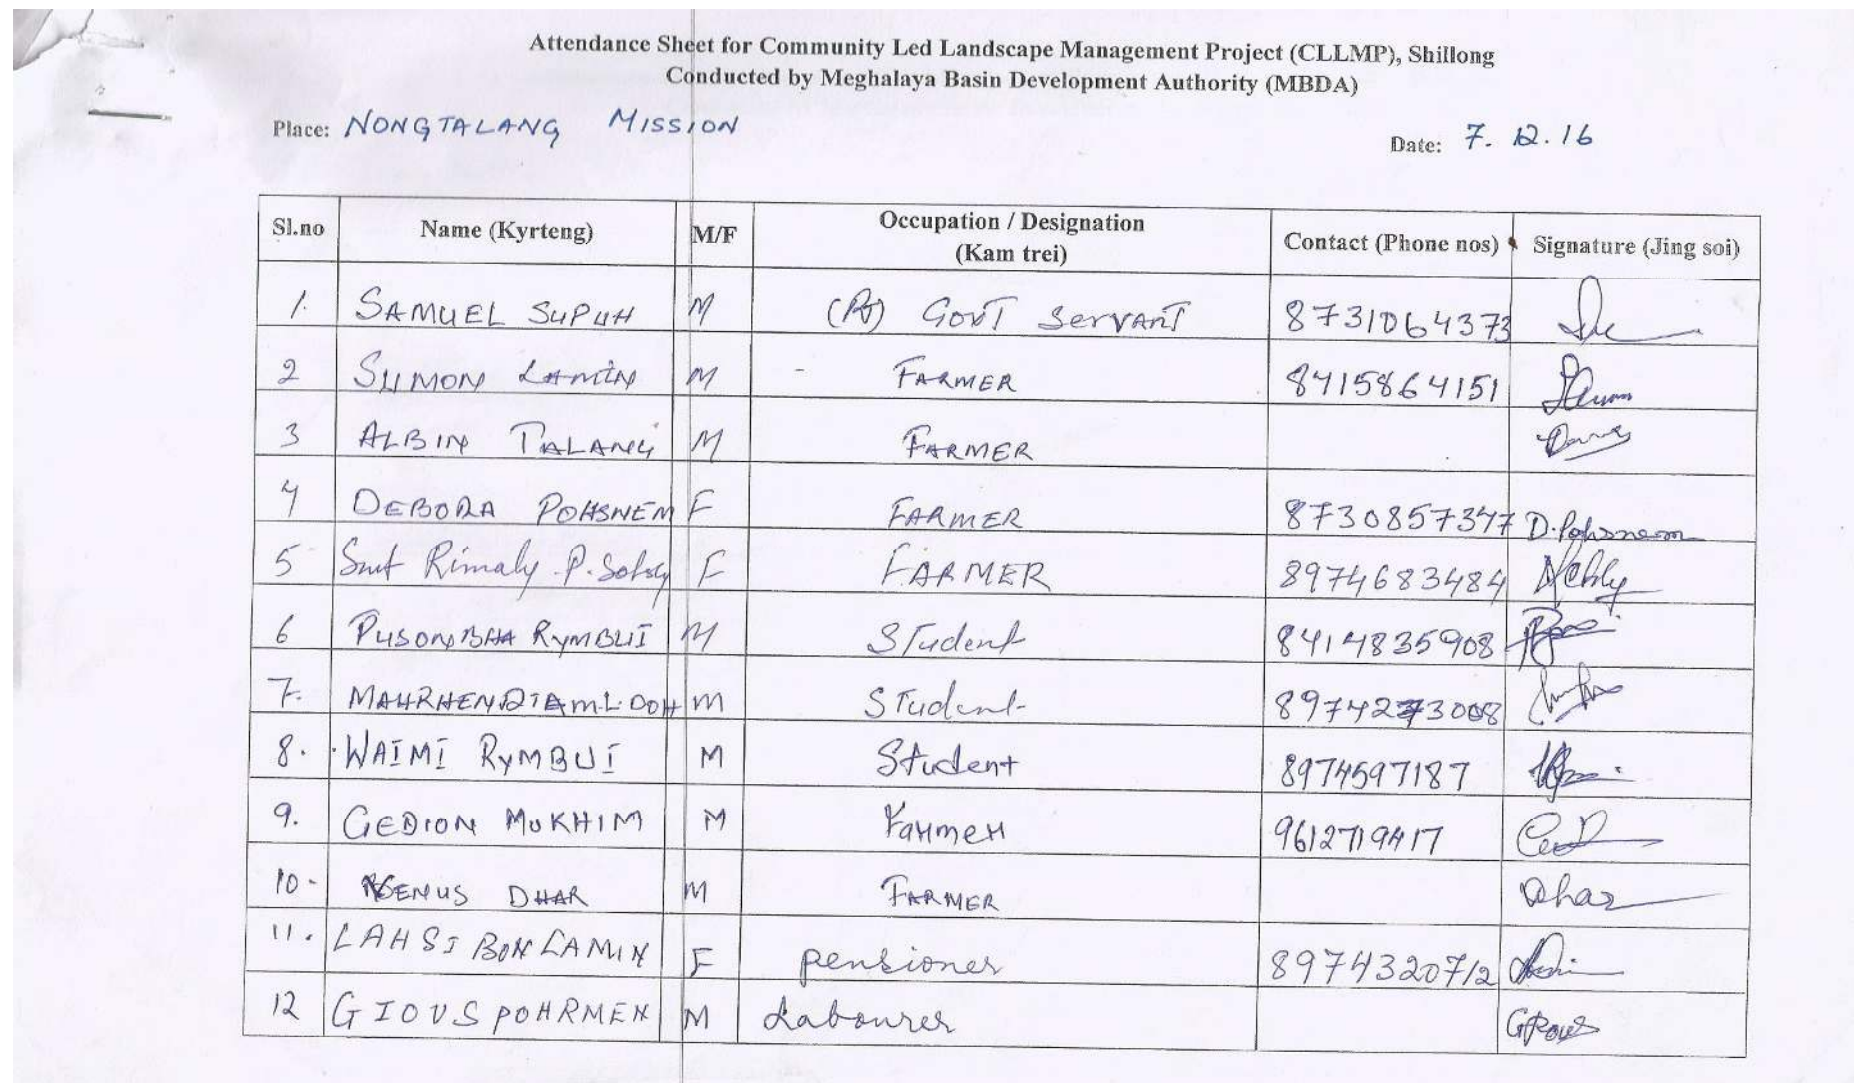 Attendance Sheet for Community Led Landscape Management Project (CLLMP), Shillong
Conducted by Meghalaya Basin Development Authority (MBDA)
Place: NONGTALANG MISSION
Date: 7. 12. 16
Sl.no Name (Kyrteng) M/F Occupation / Designation (Kam trei) Contact (Phone nos) Signature (Jing soi)
1. SAMUEL SUPUH M (Rt) GOVT Servant 8731064373
2 SUMON LAMIN M - FARMER 8415864151
3 ALBIN TALANG M FARMER
4 DEBORA POHSNEM F FARMER 8730857347 D. Pohsnem
5 Smt Rimaly P. F FARMER 8974683484
6 PUSONBHA RYMBUI M Student 8414835908
7. M Student
8. WAIMI RYMBUI M Student 8974597187
9. GEDION MUKHIM M Farmer 9612719417
10 - DHAR M FARMER Dhar
11. LAHSI BON LAMIN F pensioner 8974320712
12 GIOVS POHRMEN M Labourer